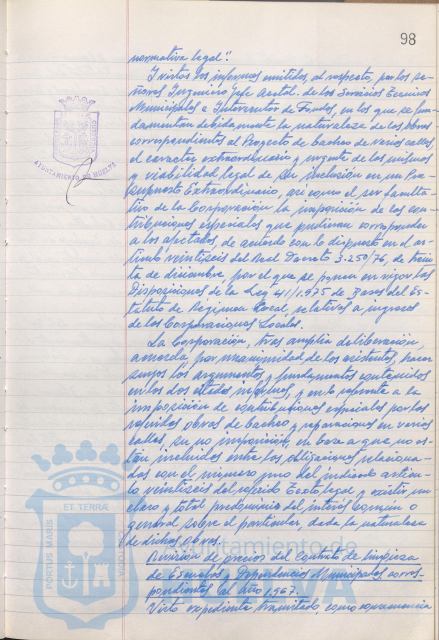 98
normativa legal".
Y vistos los informes emitidos, al respecto, por los se-
ñores Ingeniero Jefe Acctal. de los Servicios Técnicos
Municipales e Interventor de Fondos, en los que se fun-
damentan debidamente la naturaleza de las obras
correspondientes al Proyecto de bacheo de varias calles,
el carácter extraordinario y urgente de las mismas
y viabilidad legal de su inclusión en un Pre-
supuesto Extraordinario, así como el ser faculta-
tivo de la Corporación la imposición de las con-
tribuciones especiales que pudieran corresponder
a los afectados, de acuerdo con lo dispuesto en el ar-
tículo veintiseis del Real Decreto 3.250/76, de trein-
ta de diciembre, por el que se ponen en vigor las
Disposiciones de la Ley 41/1.975 de Bases del Es-
tatuto de Régimen Local, relativas a ingresos
de las Corporaciones Locales.
La Corporación, tras amplia deliberación,
acuerda, por unanimidad de los asistentes, hacer
suyos los argumentos y fundamentos contenidos
en los dos citados informes, y en lo referente a la
imposición de contribuciones especiales por las
referidas obras de bacheo y reparaciones en varias
calles, su no imposición, en base a que no es-
tán incluidas entre las obligaciones relaciona-
das con el número uno del indicado artícu-
lo veintiseis del referido Texto legal y existir un
claro y total predominio del interés común o
general sobre el particular, dada la naturaleza
de dichas obras.
Revisión de precios del Contrato de limpieza
de Escuelas y Dependencias Municipales corres-
pondientes al año 1.967.
Visto expediente tramitado, como consecuencia
AYUNTAMIENTO DE HUELVA
PORTUS MARIS
ET TERRAE
CUSTODIA
Ayuntamiento de
HUELVA